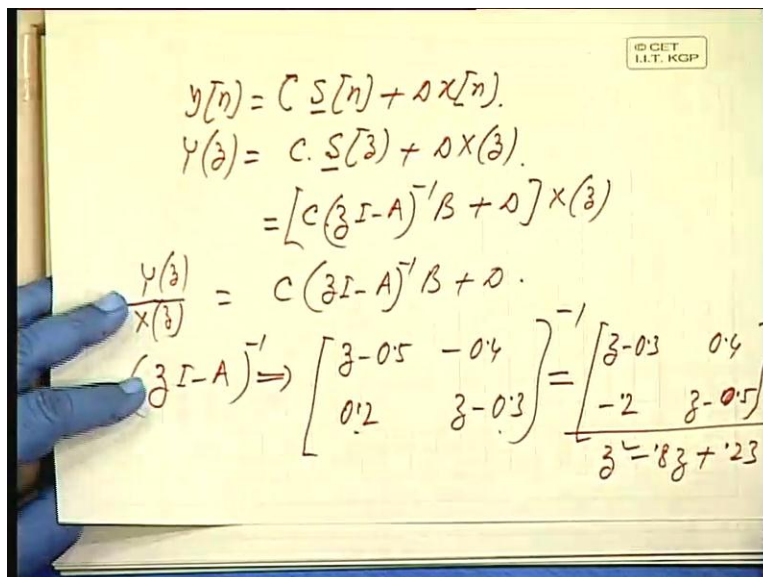 © CET
I.I.T. KGP
y[n] = C S[n] + D X[n].
Y(z) = C. S[z) + D X(z).
= [C(zI-A)⁻¹B + D] X(z)
Y(z)/X(z) = C (zI-A)⁻¹B + D.
(zI-A)⁻¹ ⇒ [z-0.5 -0.4; 0.2 z-0.3]⁻¹ = [z-0.3 0.4; -.2 z-0.5] / z² - .8z + .23